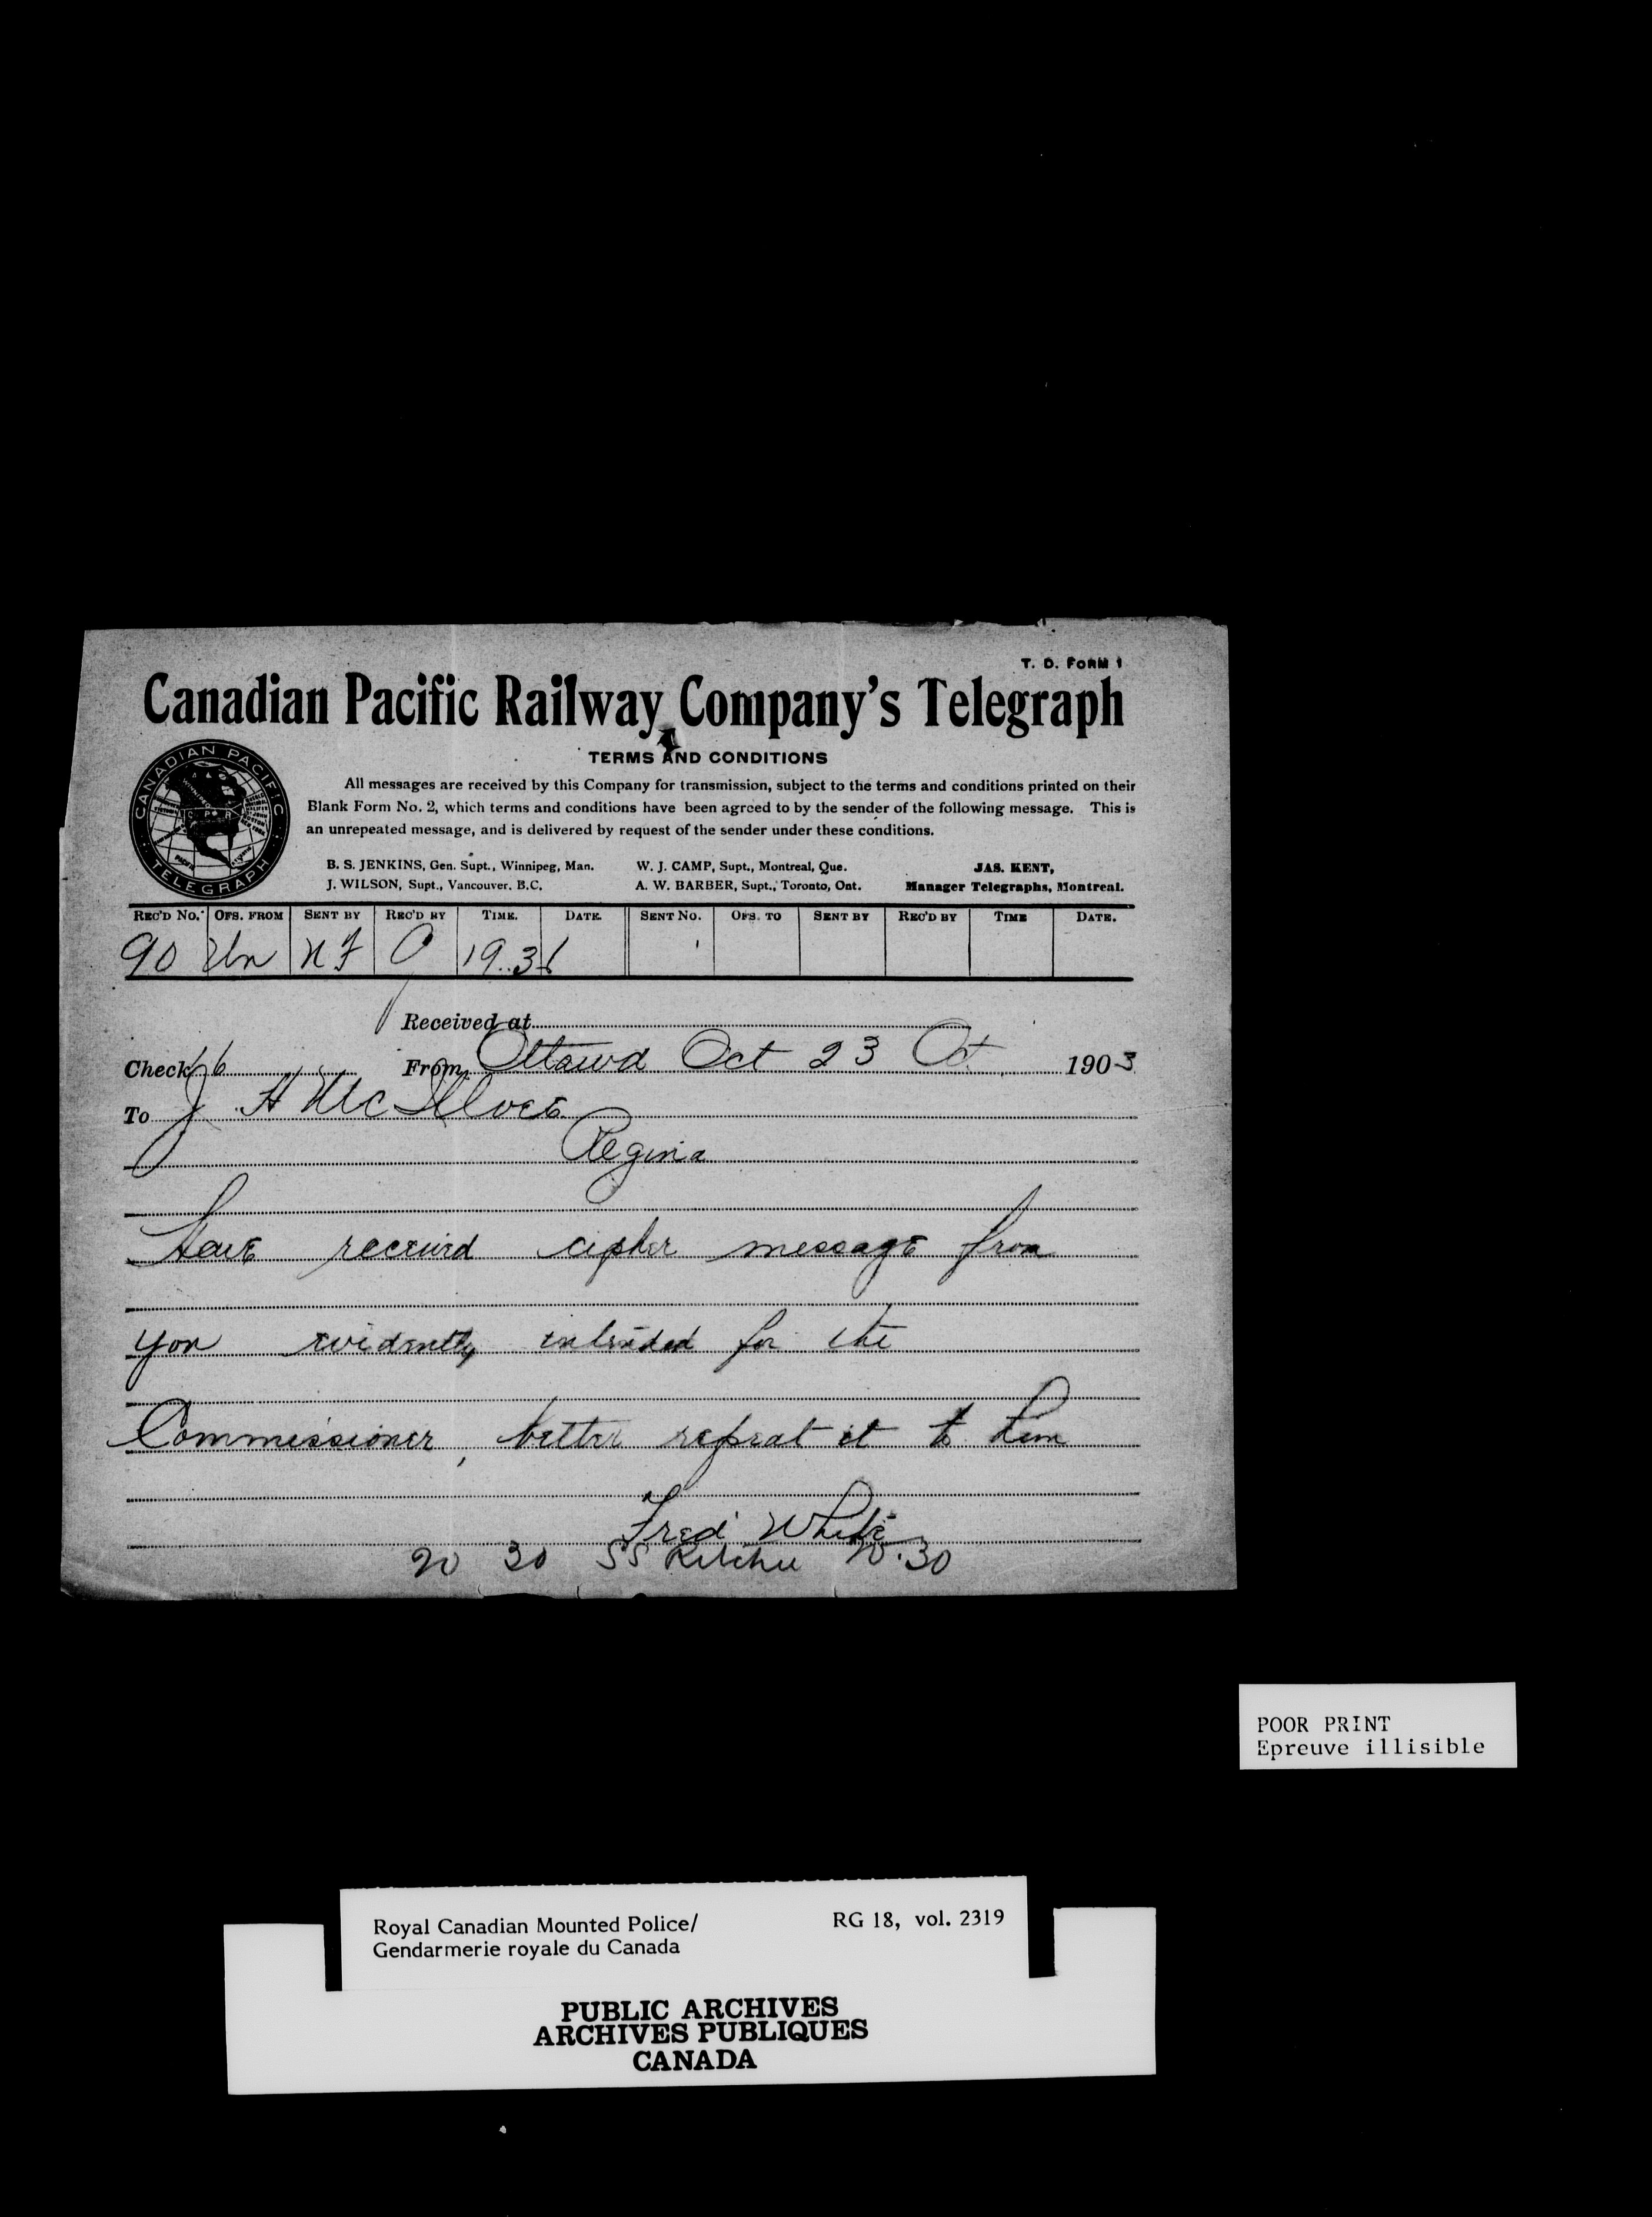 T. D. FORM 1
Canadian Pacific Railway Company's Telegraph
TERMS AND CONDITIONS
CANADIAN PACIFIC
TELEGRAPH
All messages are received by this Company for transmission, subject to the terms and conditions printed on their
Blank Form No. 2, which terms and conditions have been agreed to by the sender of the following message. This is
an unrepeated message, and is delivered by request of the sender under these conditions.
B. S. JENKINS, Gen. Supt., Winnipeg, Man. W. J. CAMP, Supt., Montreal, Que. JAS. KENT,
J. WILSON, Supt., Vancouver, B.C. A. W. BARBER, Supt., Toronto, Ont. Manager Telegraphs, Montreal.
REC'D No. OFS. FROM SENT BY REC'D BY TIME. DATE. SENT No. OFS. TO SENT BY REC'D BY TIME DATE.
90 19.
Received at
Check From Ottawa Oct 23 Oct 1903
To J H Mc
Regina
Have received cipher message from
you evidently intended for the
Commissioner, better repeat it to him
Fred White
20 30 SS Ritchie 20.30
POOR PRINT
Epreuve illisible
Royal Canadian Mounted Police/ RG 18, vol. 2319
Gendarmerie royale du Canada
PUBLIC ARCHIVES
ARCHIVES PUBLIQUES
CANADA